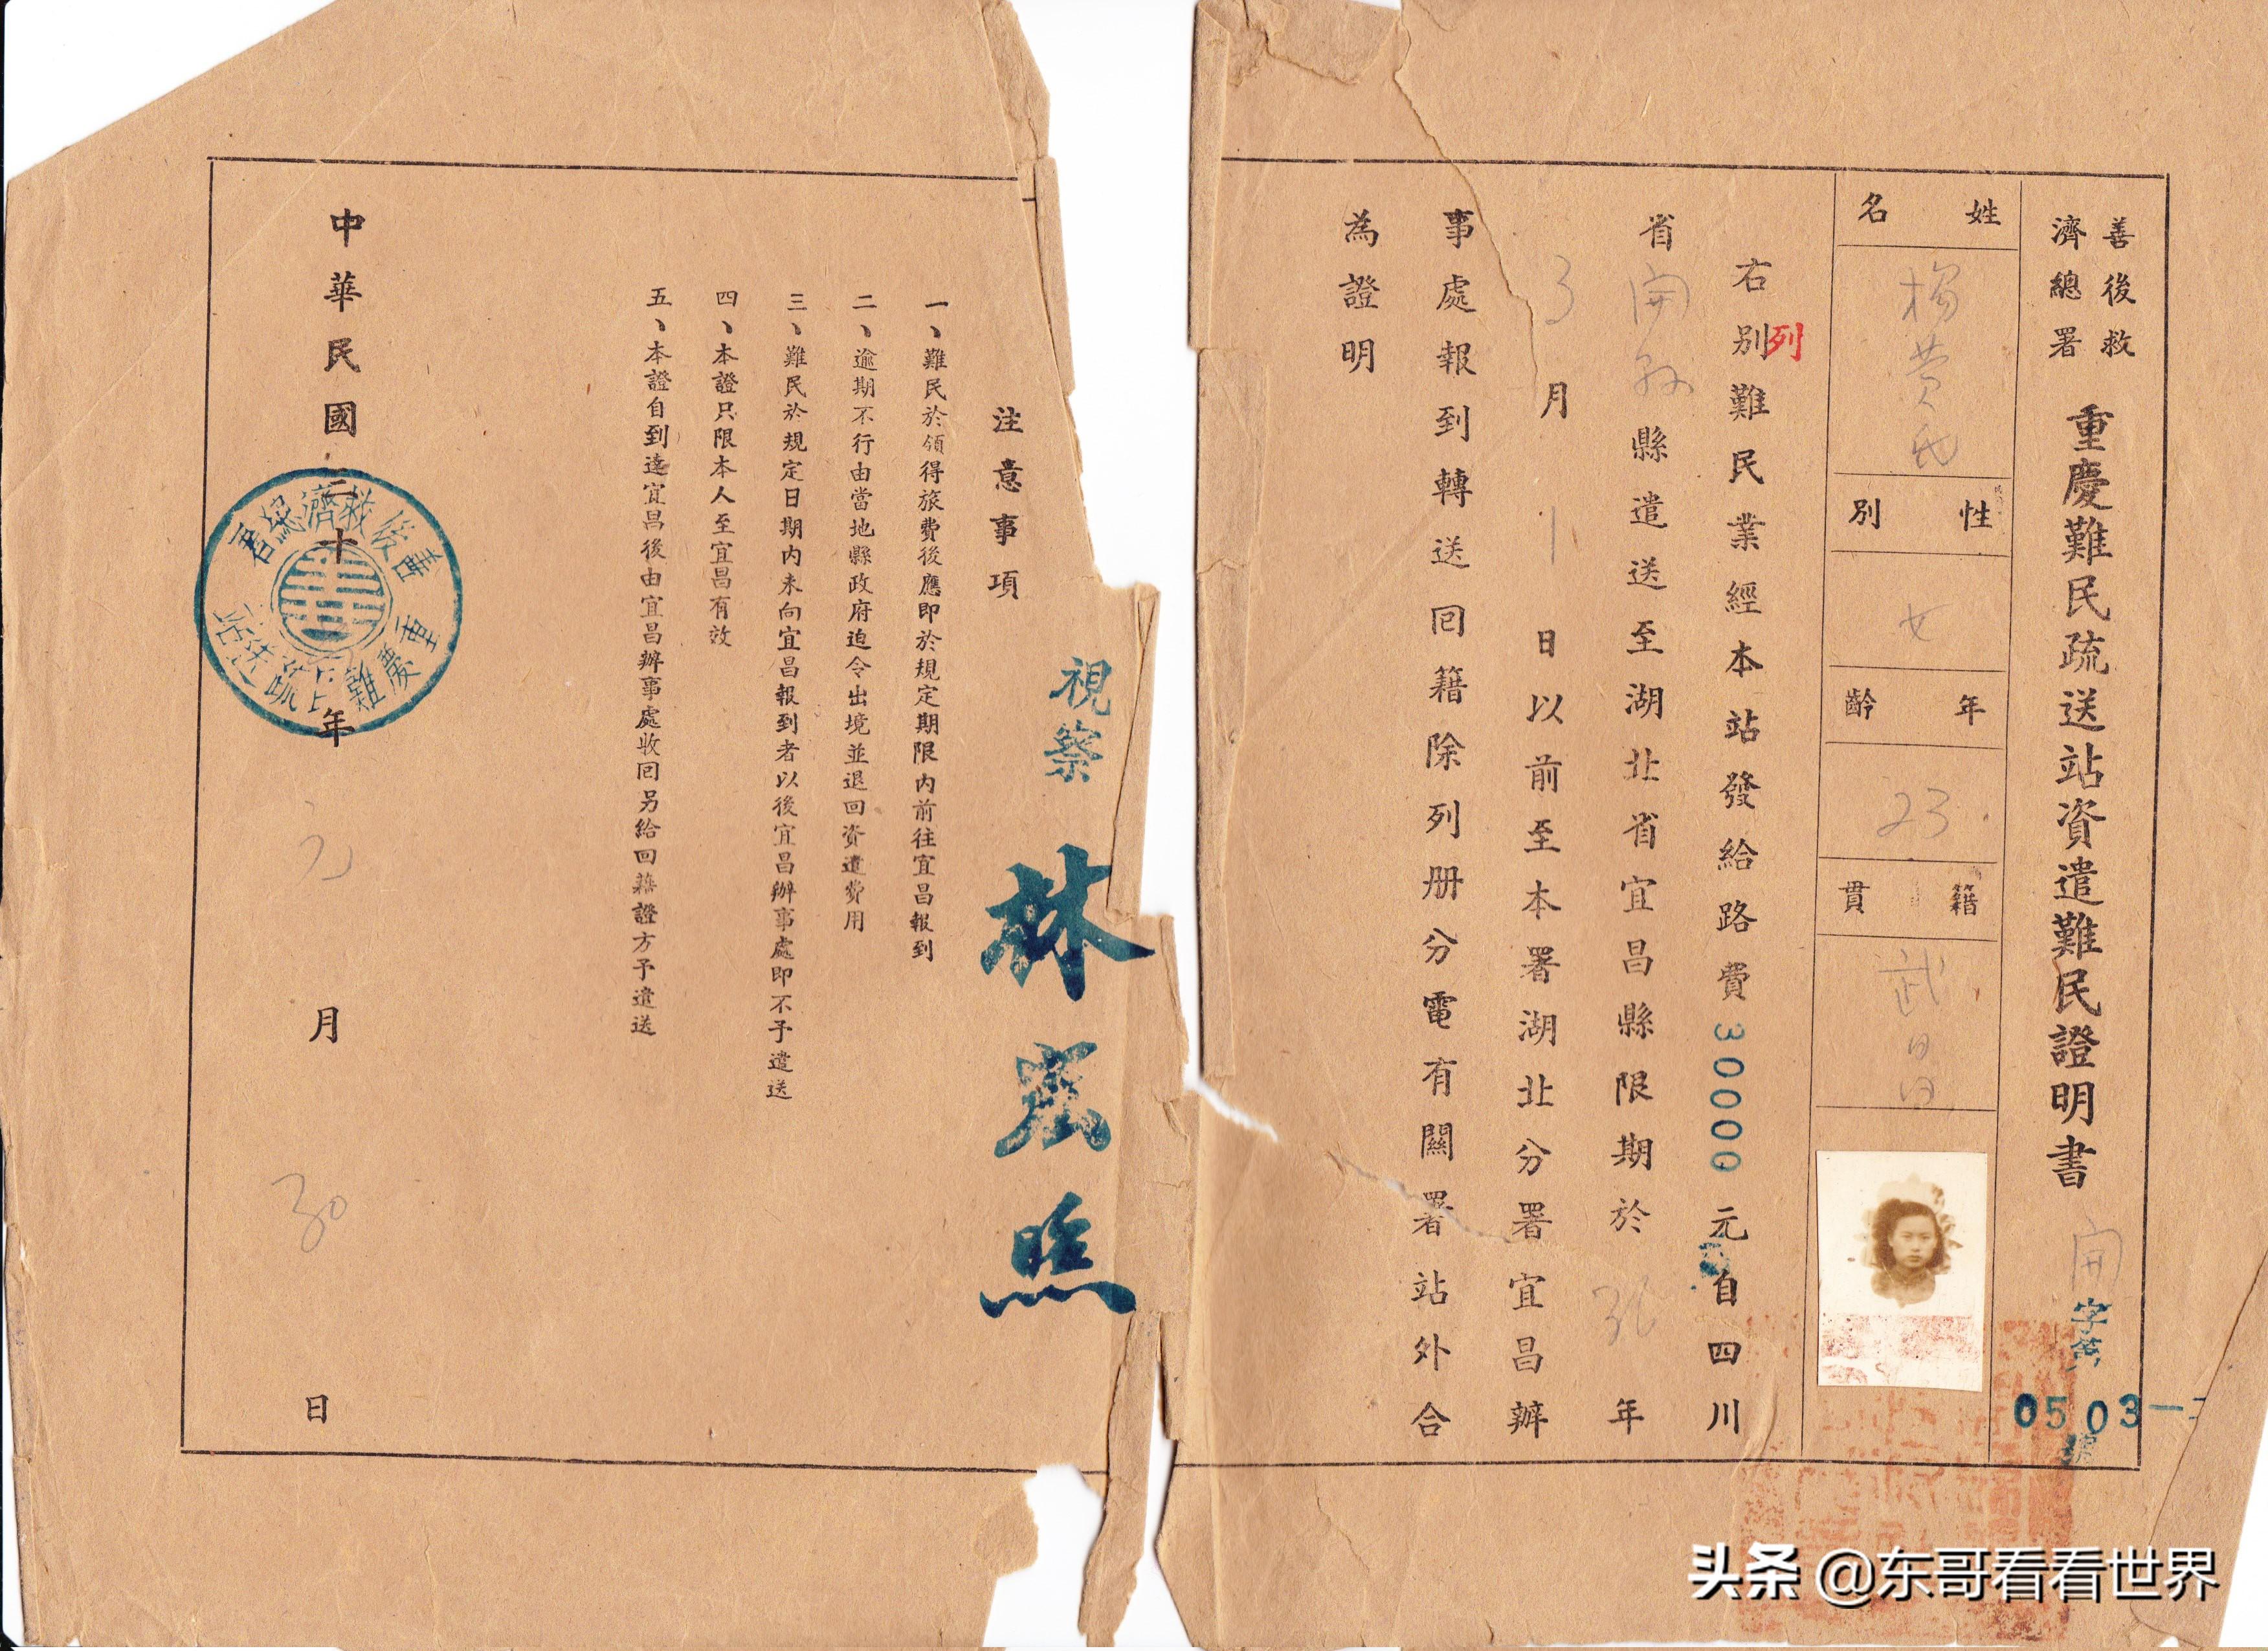 善後救
濟總署
重慶難民疏送站資遣難民證明書
開字第
0503
號
姓名
楊黄氏
性別
女
年齡
23
籍貫
武昌
右别難民業經本站發給路費30000元自四川
列
省開縣遣送至湖北省宜昌縣限期於36年
3月1日以前至本署湖北分署宜昌辦
事處報到轉送回籍除列册分電有關署站外合
為證明
視察
林
照
注意事項
一、難民於領得旅費後應即於規定期限內前往宜昌報到
二、逾期不行由當地縣政府迫令出境並退回資遣費用
三、難民於規定日期内未向宜昌報到者以後宜昌辦事處即不予遣送
四、本證只限本人至宜昌有效
五、本證自到達宜昌後由宜昌辦事處收回另給回籍證方予遣送
中華民國三十年元月30日
善後救濟總署
重慶難民疏送站
头条 @东哥看看世界